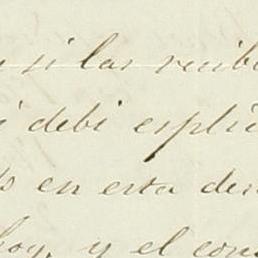 si las recib
debi explic
en esta den
hoy, y el con